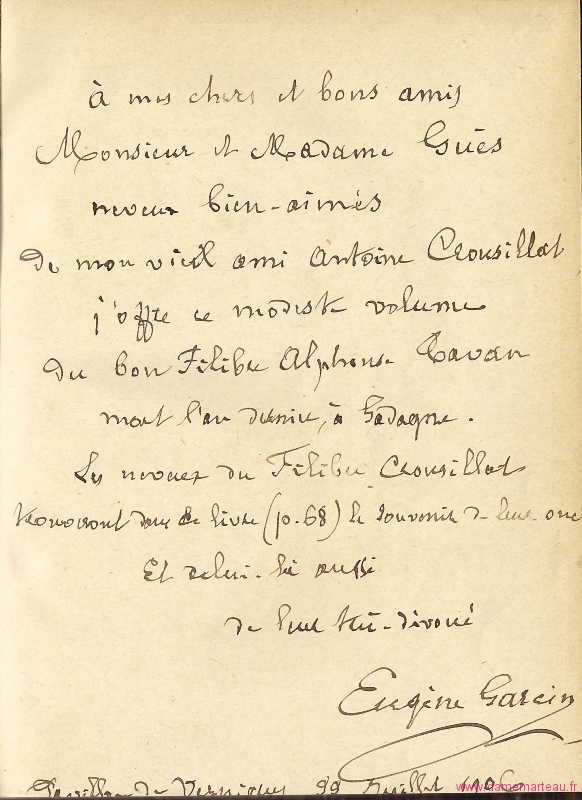 à mes chers et bons amis
Monsieur et Madame Guës
neveux bien-aimés
de mon vieil ami Antoine Crousillat
j'offre ce modeste volume
du bon Félibre Alphonse Tavan
mort l'an dernier, à Gadagne.
Les neveux du Félibre Crousillat
trouveront dans ce livre (p. 68) le souvenir de leur oncl
Et celui-là aussi
de leur très-dévoué
Eugène Garcin
22 juillet 1906
www.damemarteau.fr